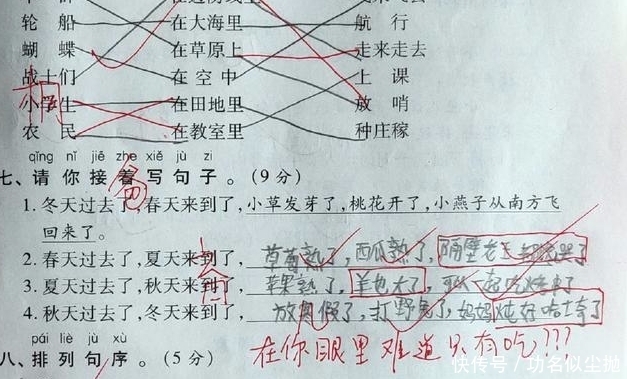 轮 船 在大海里 航 行
蝴 蝶 在草原上 走来走去
战士们 在 空 中 上 课
小学生 在田地里 放 哨
农 民 在教室里 种庄稼
qīng nǐ jiē zhe xiě jù zi
七、请你接着写句子。(9分)
1.冬天过去了,春天来到了,小草发芽了,桃花开了,小燕子从南方飞
回来了。
2.春天过去了,夏天来到了,草莓熟了,西瓜熟了,隔壁老王
3.夏天过去了,秋天来到了,苹果熟了,羊也大了,可以
4.秋天过去了,冬天来到了,放寒假了,打野兔了,妈妈炖好
pái liè jù xù
八、排列句序。(5分)
在你眼里难道只有吃???
快传号/功名似尘抛